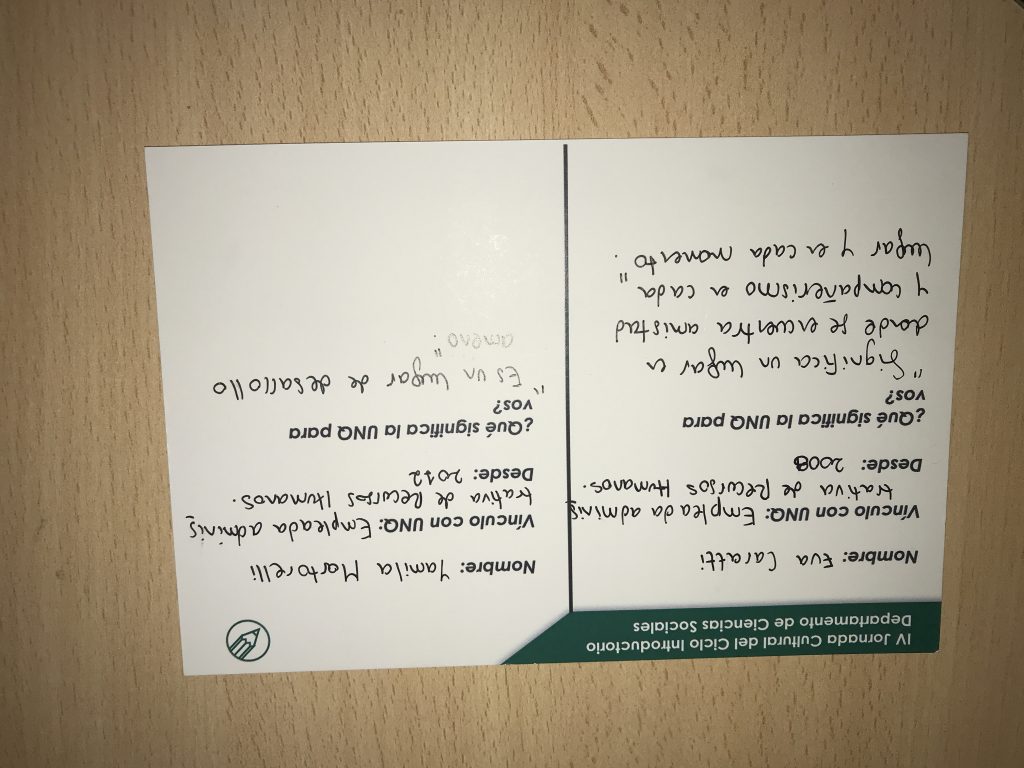 IV Jornada Cultural del Ciclo Introductorio
Departamento de Ciencias Sociales
Nombre: Eva Caratti
Vínculo con UNQ: Empleada adminis
trativa de Recursos Humanos.
Desde: 2008
¿Qué significa la UNQ para
vos?
"Significa un lugar en
donde se encuentra amistad
y compañerismo en cada
lugar y en cada momento".
Nombre: Yamila Martorelli
Vínculo con UNQ: Empleada adminis
trativa de Recursos Humanos.
Desde: 2012
¿Qué significa la UNQ para
vos?
"Es un lugar de desarrollo
ameno".